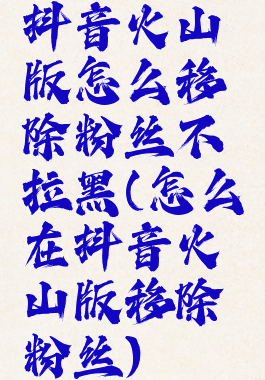 抖音火山
版怎么移
除粉丝不
拉黑(怎么
在抖音火
山版移除
粉丝)